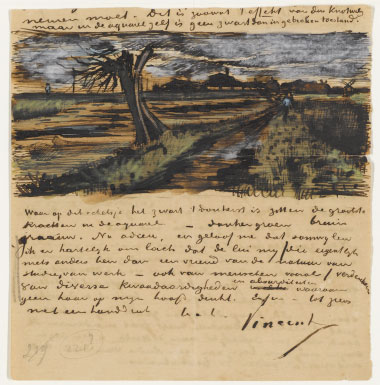 nemen moet. Dit is zoowat 't effekt van den knotwilg
maar in de aquarel zelf is geen zwart dan in gebroken toestand.
Waar op dit schetsje het zwart 't donkerst is zitten de grootste
krachten in de aquarel — donkergroen bruin
graauw. Nu adieu, en geloof me dat somwylen
ik er hartelyk om lach dat de lui my /die eigentlyk
niets anders ben dan een vriend van de natuur van
studie van werk — ook van menschen vooral/ verdenken
van diverse kwaadaardigheden en absurditeiten waaraan
geen haar op myn hoofd denkt. Enfin — tot ziens
met een handdruk t. à t.
Vincent